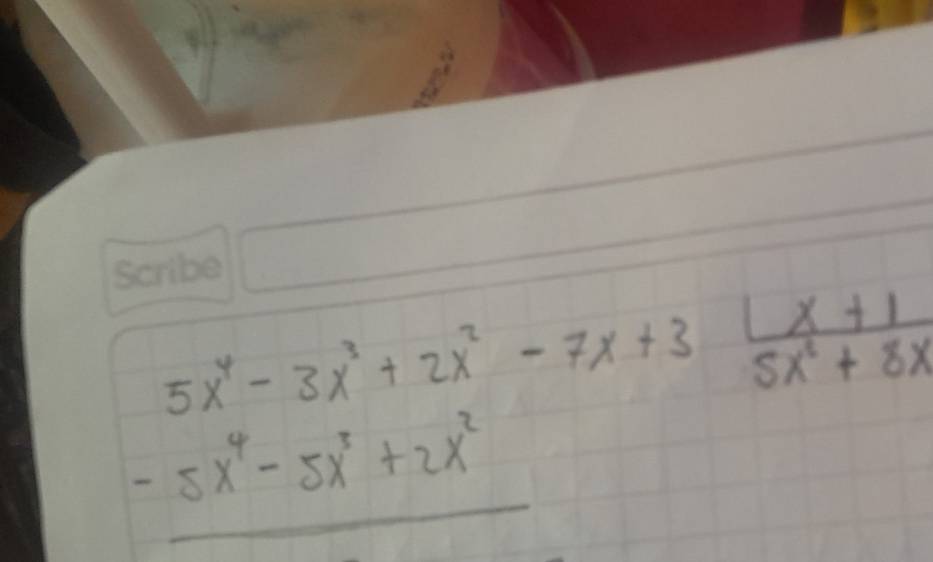 Scribe
5x⁴ - 3x³ + 2x² - 7x + 3 | x + 1
5x² + 8x
- 5x⁴ - 5x³ + 2x²